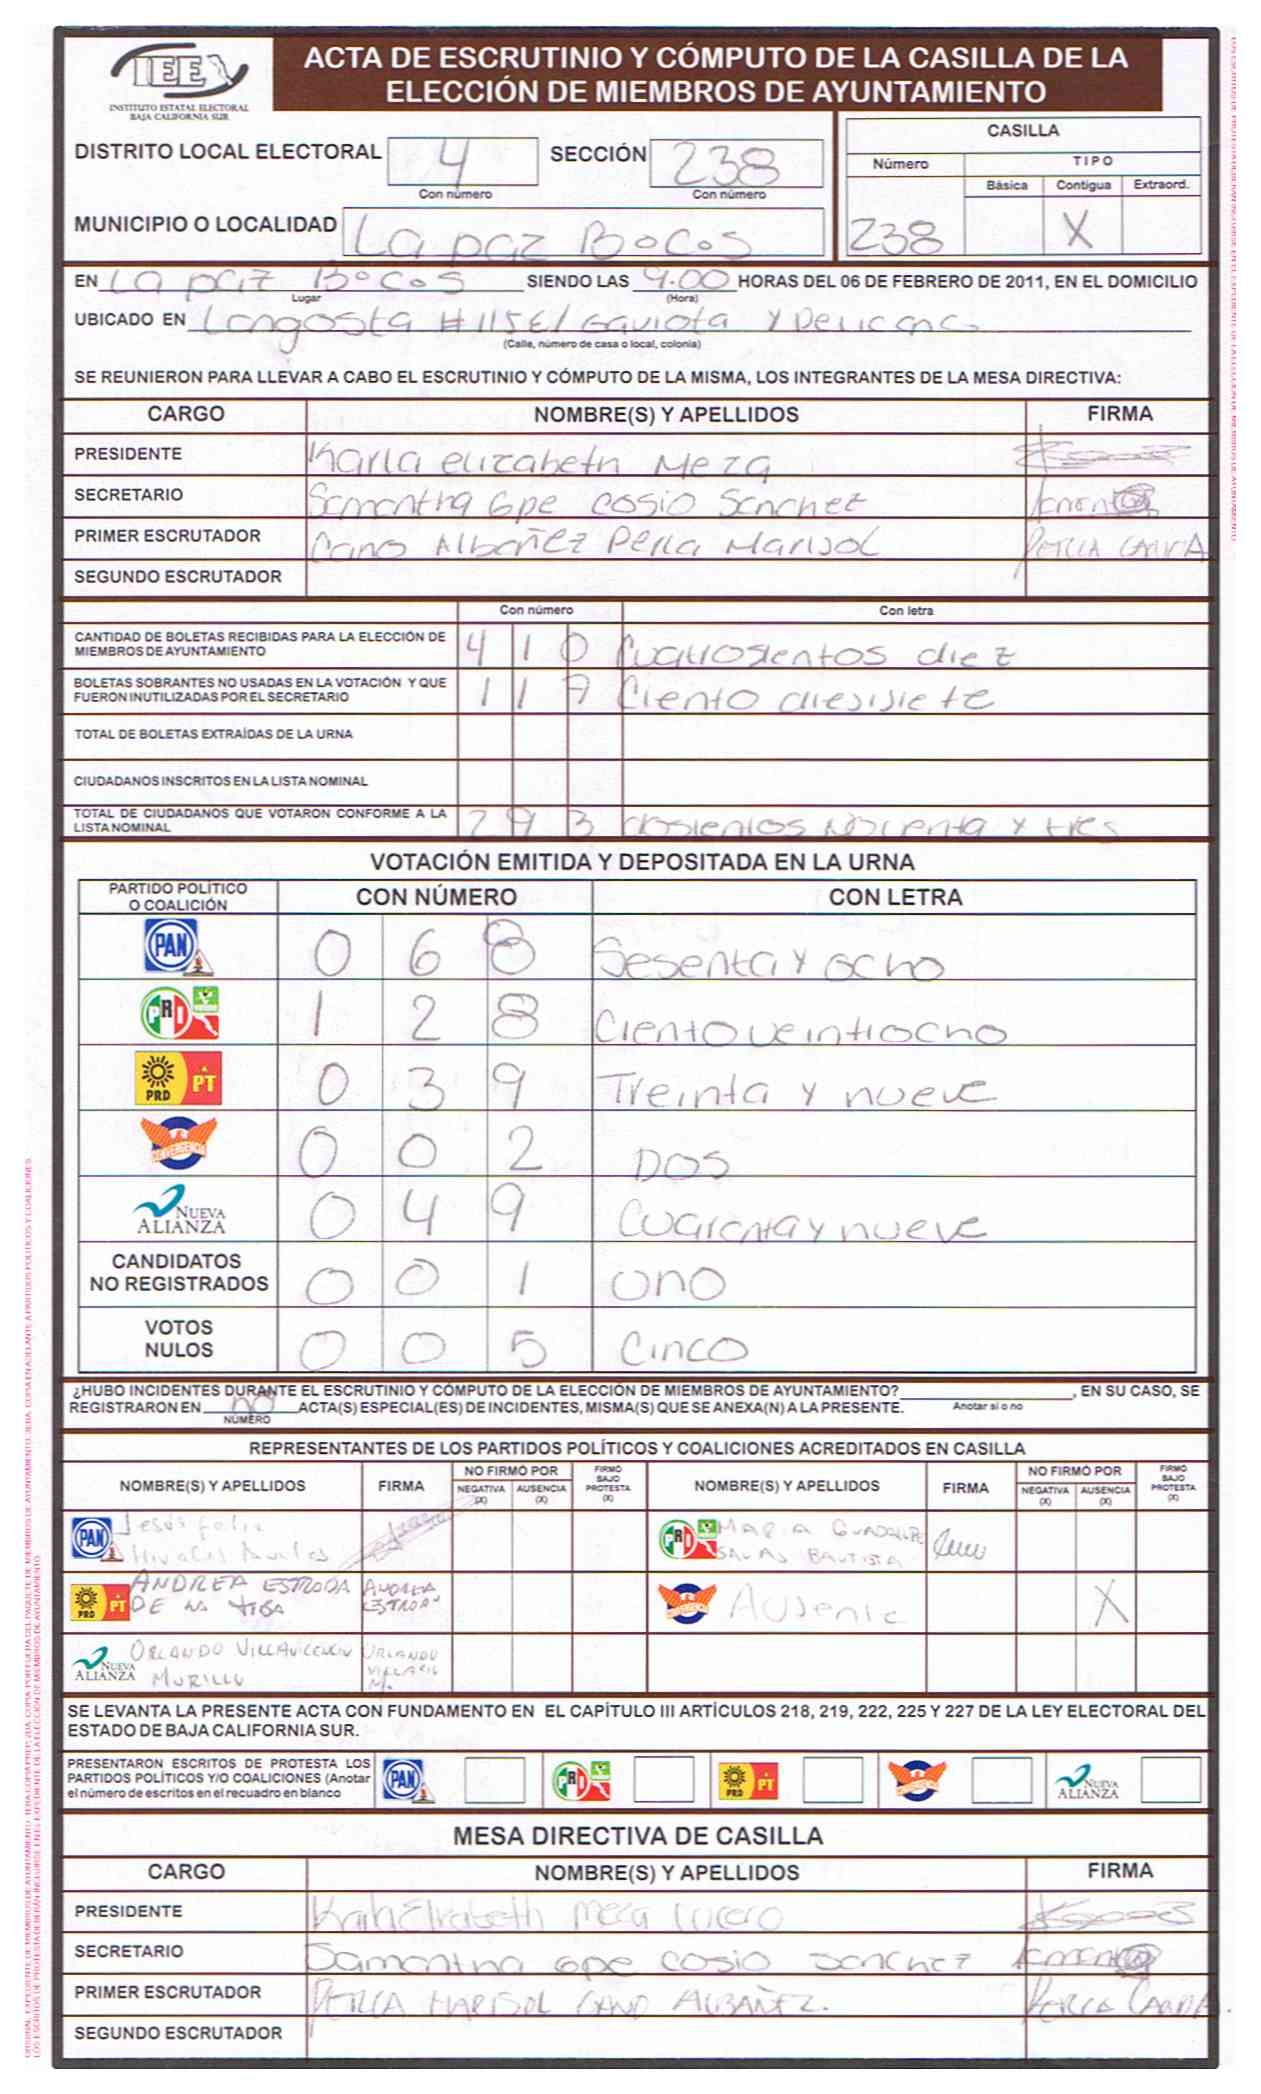 IEE
INSTITUTO ESTATAL ELECTORAL
BAJA CALIFORNIA SUR
ACTA DE ESCRUTINIO Y CÓMPUTO DE LA CASILLA DE LA
ELECCIÓN DE MIEMBROS DE AYUNTAMIENTO
DISTRITO LOCAL ELECTORAL 4 SECCIÓN 238
Con número Con número
MUNICIPIO O LOCALIDAD La paz Bocos
CASILLA
Número TIPO
Básica Contigua Extraord.
238 X
EN La paz Bocos SIENDO LAS 9:00 HORAS DEL 06 DE FEBRERO DE 2011, EN EL DOMICILIO
Lugar (Hora)
UBICADO EN Langosta #115 E/ Gaviota y Pelicano
(Calle, número de casa o local, colonia)
SE REUNIERON PARA LLEVAR A CABO EL ESCRUTINIO Y CÓMPUTO DE LA MISMA, LOS INTEGRANTES DE LA MESA DIRECTIVA:
CARGO NOMBRE(S) Y APELLIDOS FIRMA
PRESIDENTE Karla elizabeth Meza
SECRETARIO Samantha Gpe cosio Sanchez
PRIMER ESCRUTADOR Cano Albañez Perla Marisol
SEGUNDO ESCRUTADOR
Con número Con letra
CANTIDAD DE BOLETAS RECIBIDAS PARA LA ELECCIÓN DE
MIEMBROS DE AYUNTAMIENTO 4 1 0 Cuatrosientos diez
BOLETAS SOBRANTES NO USADAS EN LA VOTACIÓN Y QUE
FUERON INUTILIZADAS POR EL SECRETARIO 1 1 7 Ciento diesisiete
TOTAL DE BOLETAS EXTRAÍDAS DE LA URNA
CIUDADANOS INSCRITOS EN LA LISTA NOMINAL
TOTAL DE CIUDADANOS QUE VOTARON CONFORME A LA
LISTA NOMINAL 2 9 3 dosientos Noventa y tres
VOTACIÓN EMITIDA Y DEPOSITADA EN LA URNA
PARTIDO POLÍTICO
O COALICIÓN CON NÚMERO CON LETRA
PAN 0 6 8 Sesenta y ocho
PRI 1 2 8 Ciento veintiocho
PRD PT 0 3 9 Treinta y nueve
CONVERGENCIA 0 0 2 DOS
NUEVA ALIANZA 0 4 9 Cuarenta y nueve
CANDIDATOS
NO REGISTRADOS 0 0 1 uno
VOTOS
NULOS 0 0 5 Cinco
¿HUBO INCIDENTES DURANTE EL ESCRUTINIO Y CÓMPUTO DE LA ELECCIÓN DE MIEMBROS DE AYUNTAMIENTO? , EN SU CASO, SE
Anotar si o no
REGISTRARON EN no ACTA(S) ESPECIAL(ES) DE INCIDENTES, MISMA(S) QUE SE ANEXA(N) A LA PRESENTE.
NÚMERO
REPRESENTANTES DE LOS PARTIDOS POLÍTICOS Y COALICIONES ACREDITADOS EN CASILLA
NOMBRE(S) Y APELLIDOS FIRMA NO FIRMÓ POR NEGATIVA (X) AUSENCIA (X) FIRMÓ BAJO PROTESTA (X) NOMBRE(S) Y APELLIDOS FIRMA NO FIRMÓ POR NEGATIVA (X) AUSENCIA (X) FIRMÓ BAJO PROTESTA (X)
PAN Jesus PRI MARIA GUADALUPE
SALAS BAUTISTA
PRD PT ANDREA ESTRADA ANDREA CONVERGENCIA Ausente X
DE LA ESTRADA
NUEVA ALIANZA ORLANDO VILLAVICENCIO ORLANDO
MURILLO
SE LEVANTA LA PRESENTE ACTA CON FUNDAMENTO EN EL CAPÍTULO III ARTÍCULOS 218, 219, 222, 225 Y 227 DE LA LEY ELECTORAL DEL
ESTADO DE BAJA CALIFORNIA SUR.
PRESENTARON ESCRITOS DE PROTESTA LOS
PARTIDOS POLÍTICOS Y/O COALICIONES (Anotar
el número de escritos en el recuadro en blanco
PAN PRI PRD PT CONVERGENCIA NUEVA ALIANZA
MESA DIRECTIVA DE CASILLA
CARGO NOMBRE(S) Y APELLIDOS FIRMA
PRESIDENTE Karla Elizabeth Meza Lucero
SECRETARIO Samantha Gpe cosio Sanchez
PRIMER ESCRUTADOR PERLA MARISOL CANO ALBAÑEZ.
SEGUNDO ESCRUTADOR